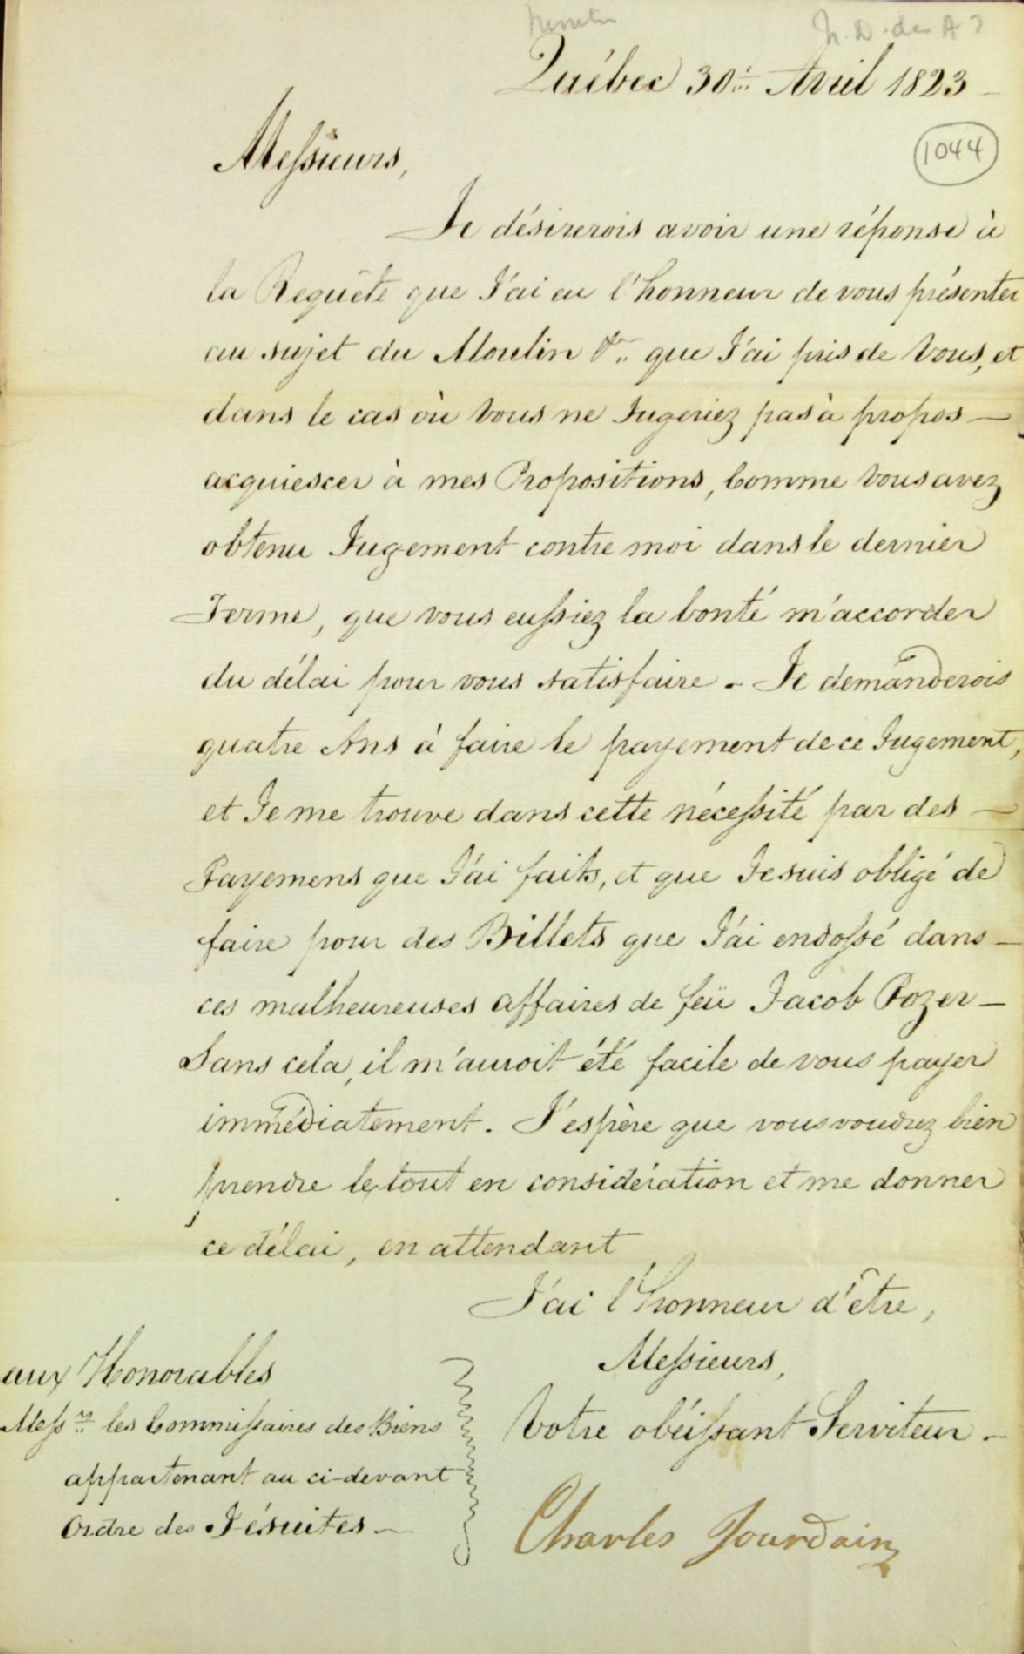 N. D. des A ?
Québec 30.. Avril 1823 —
1044
Messieurs,
Je désirerois avoir une réponse à
la Requête que J'ai eu l'honneur de vous présenter
au sujet du Moulin &c.. que J'ai pris de Vous, et
dans le cas où Vous ne Jugeriez pas à propos —
acquiescer à mes Propositions, Comme Vous avez
obtenu Jugement contre moi dans le dernier
Terme, que vous eussiez la bonté m'accorder
du délai pour vous satisfaire - Je demanderois
quatre Ans à faire le payement de ce Jugement,
et Je me trouve dans cette nécessité par des —
Payemens que J'ai faits, et que Je suis obligé de
faire pour des Billets que J'ai endossé dans —
ces malheureuses affaires de feü Jacob Pozer —
Sans cela, il m'auroit été facile de vous payer
immédiatement. J'espère que vous voudrez bien
prendre le tout en considération et me donner
ce délai, en attendant
J'ai l'honneur d'être,
Messieurs,
Votre obéissant Serviteur -
Charles Jourdain
aux Honorables
Messrs les Commissaires des Biens
appartenant au ci-devant
Ordre des Jésuites —